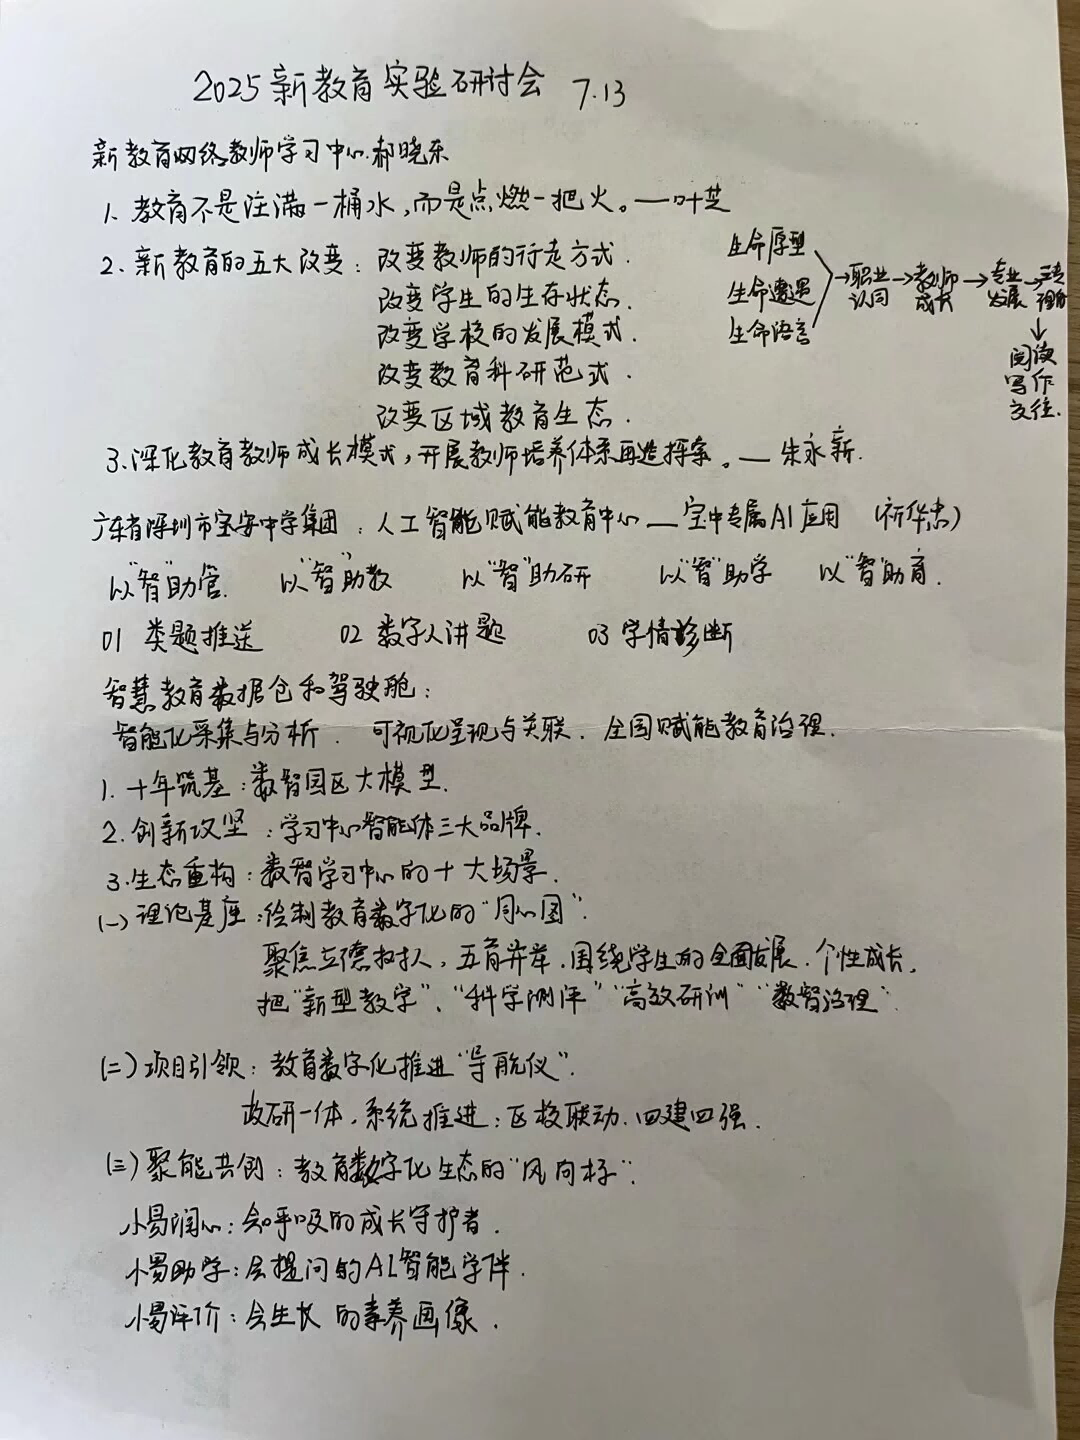 2025新教育实验研讨会 7.13
新教育网络教师学习中心.郝晓东
1、教育不是注满一桶水,而是点燃一把火。——叶芝
2、新教育的五大改变:改变教师的行走方式.
改变学生的生存状态.
改变学校的发展模式.
改变教育科研范式.
改变区域教育生态.
生命原型
生命遭遇
生命语言
→职业认同→教师成长→专业发展→三专理
↓
阅读
写作
交往.
3、深化教育教师成长模式,开展教师培养体系再造探索。——朱永新.
广东省深圳市宝安中学集团:人工智能赋能教育中心——宝中专属AI应用 (祈华忠)
以"智"助管. 以"智"助教 以"智"助研 以"智"助学 以"智"助育.
01 类题推送 02 数字人讲题 03 学情诊断
智慧教育数据仓和驾驶舱:
智能化采集与分析. 可视化呈现与关联. 全国赋能教育治理.
1. 十年筑基:数智园区大模型.
2. 创新攻坚:学习中心智能体三大品牌.
3.生态重构:数智学习中心的十大场景.
(一)理论基座:绘制教育数字化的"同心圆".
聚焦立德树人,五育并举.围绕学生的全面发展.个性成长,
把"新型教学"、"科学测评""高效研训""数智治理".
(二)项目引领:教育数字化推进"导航仪".
政研一体,系统推进;区校联动.四建四强.
(三)聚能共创:教育数字化生态的"风向标".
小易润心:会呼吸的成长守护者.
小易助学:会提问的AI智能学伴.
小易评价:会生长的素养画像.